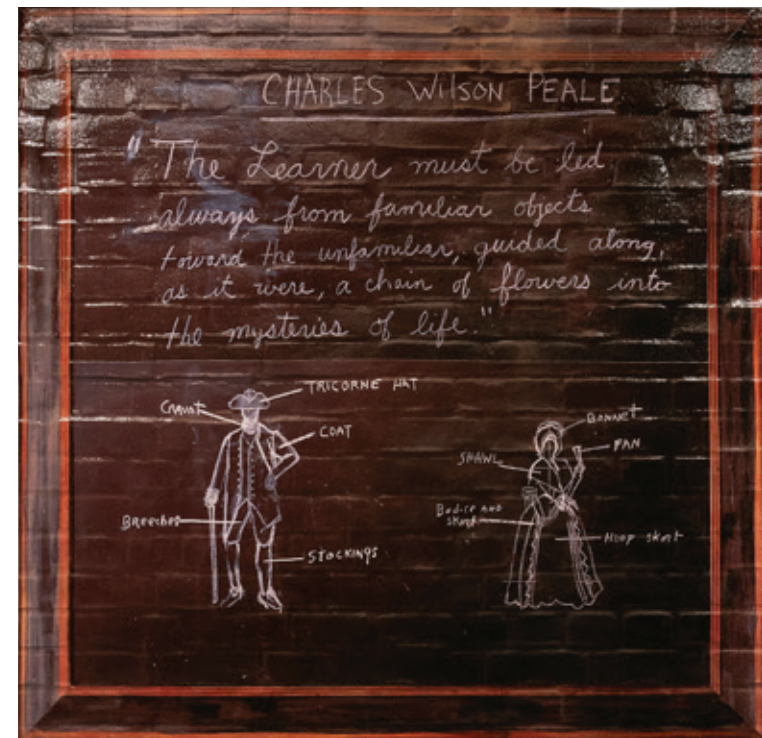 CHARLES WilSON PEALE
"The Learner must be led
always from familiar objects
toward the unfamiliar, guided along,
as it were, a chain of flowers into
the mysteries of life."
TRICORNE HAT
Cravat
COAT
Breeches
STOCKINGS
BONNET
FAN
SHAWL
Bodice AND
Skirt
Hoop skirt